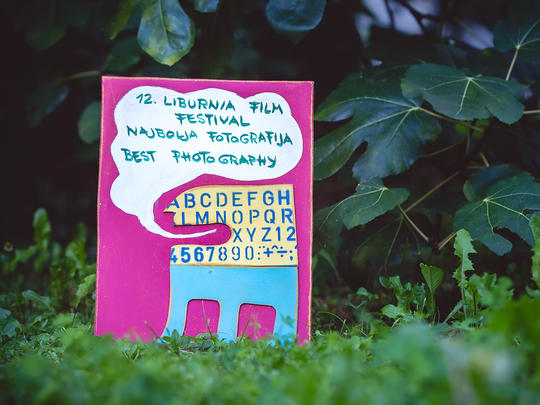 12. LIBURNIA FILM
FESTIVAL
NAJBOLJA FOTOGRAFIJA
BEST PHOTOGRAPHY
ABCDEFGH
LMNOPQR
XYZ12
4567890: